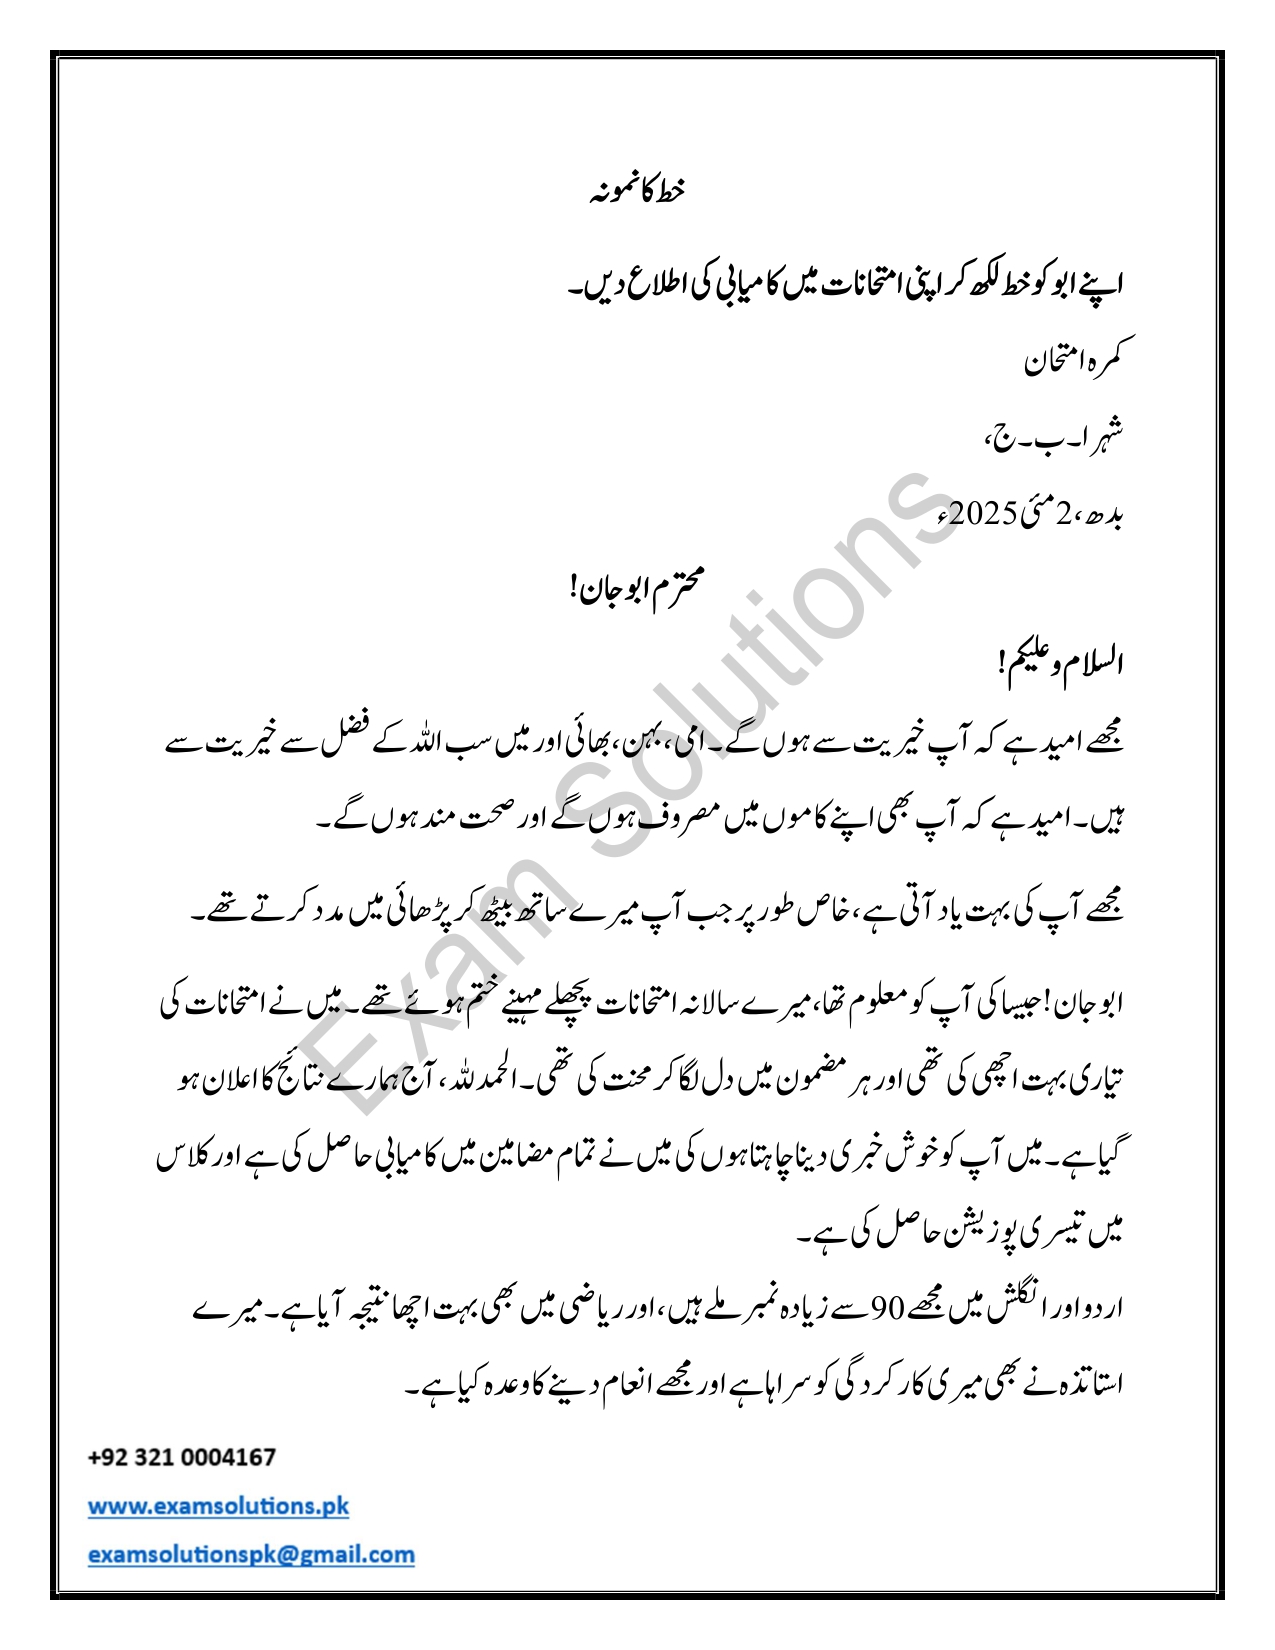 خط کا نمونہ
اپنے ابو کو خط لکھ کر اپنی امتحانات میں کامیابی کی اطلاع دیں۔
کمرہ امتحان
شہر ا۔ب۔ج،
بدھ،2مئی2025ء
محترم ابو جان!
السلام و علیکم!
مجھے امید ہے کہ آپ خیریت سے ہوں گے۔امی،بہن،بھائی اور میں سب اللہ کے فضل سے خیریت سے
ہیں۔امید ہے کہ آپ بھی اپنے کاموں میں مصروف ہوں گے اور صحت مند ہوں گے۔
مجھے آپ کی بہت یاد آتی ہے،خاص طور پر جب آپ میرے ساتھ بیٹھ کر پڑھائی میں مدد کرتے تھے۔
ابو جان!جیسا کی آپ کو معلوم تھا،میرے سالانہ امتحانات پچھلے مہینے ختم ہوئے تھے۔میں نے امتحانات کی
تیاری بہت اچھی کی تھی اور ہر مضمون میں دل لگا کر محنت کی تھی۔الحمدللہ،آج ہمارے نتائج کا اعلان ہو
گیا ہے۔میں آپ کو خوش خبری دینا چاہتا ہوں کی میں نے تمام مضامین میں کامیابی حاصل کی ہے اور کلاس
میں تیسری پوزیشن حاصل کی ہے۔
اردو اور انگلش میں مجھے 90 سے زیادہ نمبر ملے ہیں،اور ریاضی میں بھی بہت اچھا نتیجہ آیا ہے۔میرے
استاتذہ نے بھی میری کارکردگی کو سراہا ہے اور مجھے انعام دینے کا وعدہ کیا ہے۔
Exam Solutions
+92 321 0004167
www.examsolutions.pk
examsolutionspk@gmail.com